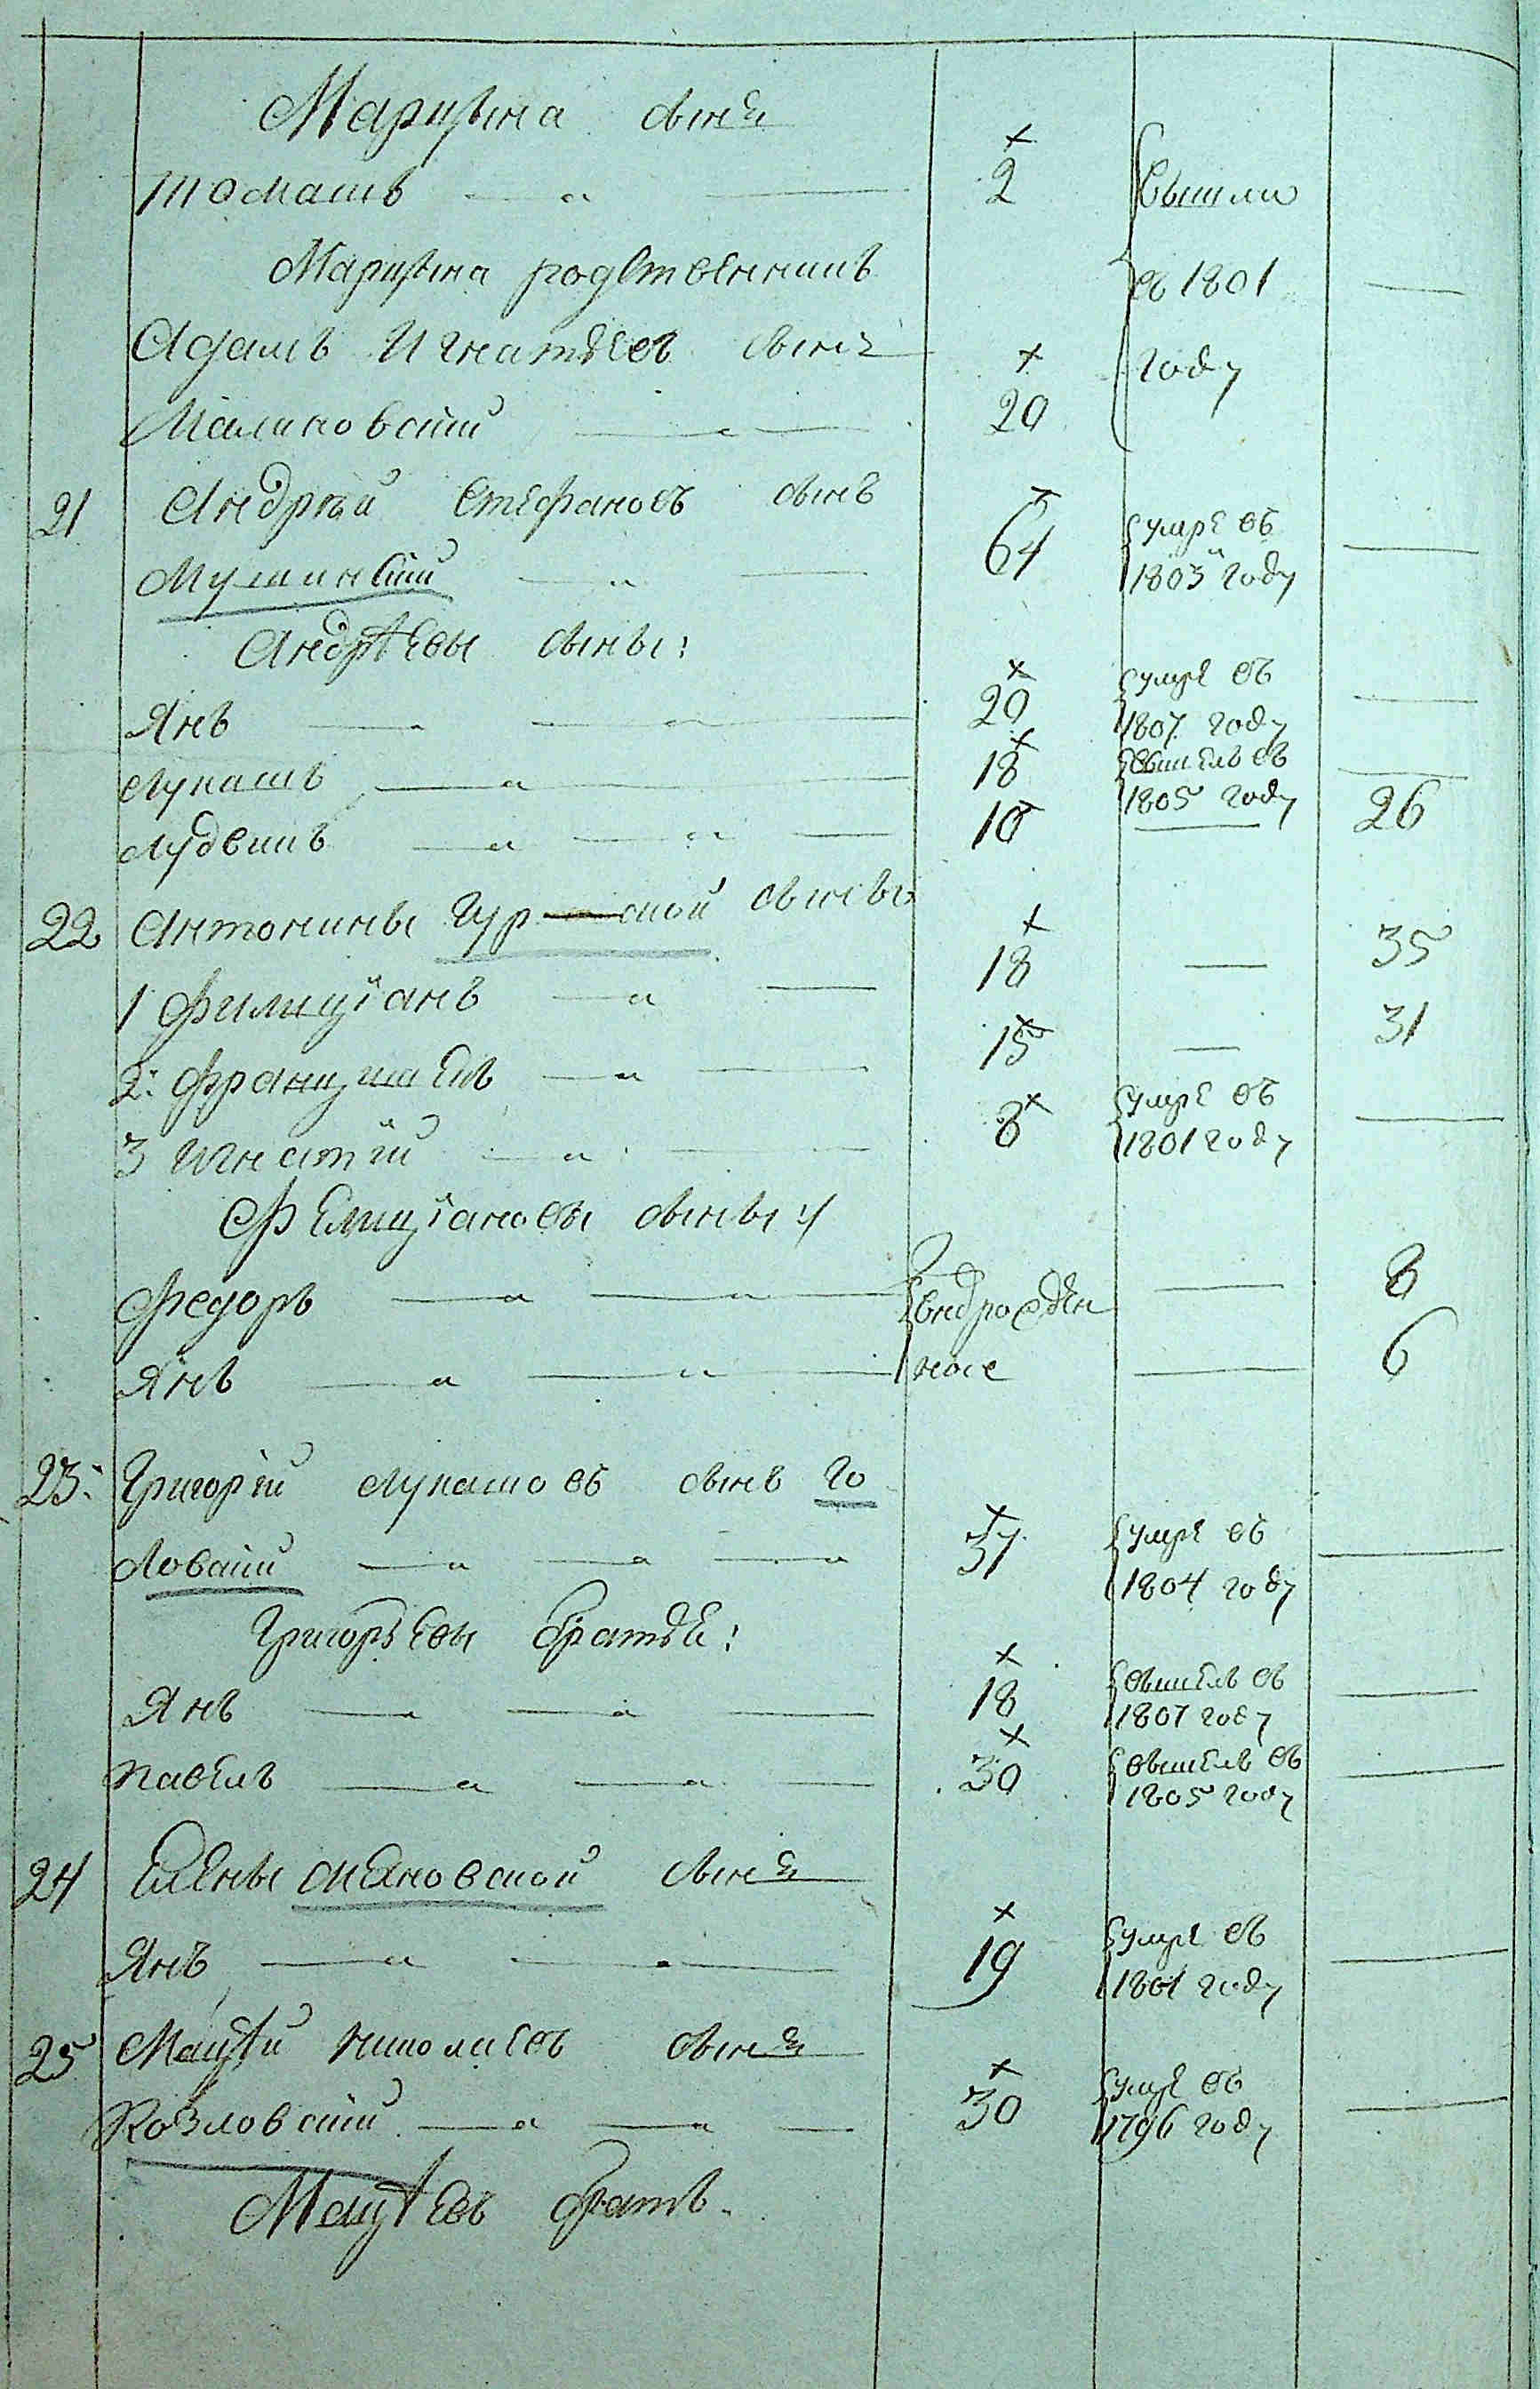 Марцына сынъ
Томашъ — „ — 2 вышли
Марцына родственникъ въ 1801 —
Адамъ Игнатьевъ сынъ году
Малиновскій — „ — 20
21 Андрей Стефановъ сынъ 64 умре въ —
— „ — 1803 году
Андрѣевы сыны:
Янъ — „ — „ — 20 умре въ —
1807 году
Лукашъ — „ — 18 вышелъ въ —
1805 году
Лудвикъ — „ — „ — 10 — 26
22 Антонины сыновья
1 Филиціанъ — „ — 18 — 35
2: Францишекъ — „ — 15 — 31
3 Игнатій — „ — 8 умре въ —
1801 году
Фелиціановы сыны:
Федоръ — „ — „ — — 8
Янъ — „ — „ — — 6
23: Григорій Лукашовъ сынъ Го
ловскій — „ — „ — „ 37 умре въ —
1804 году
Григорьевы братья:
Янъ — „ — „ — 18 вышелъ въ —
1807 году
Павелъ — „ — „ — 30 вышелъ въ —
1805 году
24 Елены сынъ
Янъ — „ — „ — 19 умре въ —
1801 году
25 Мацѣй Николаевъ сынъ
Козловскій — „ — „ — 30 умре въ —
1796 году
Мацѣевъ братъ